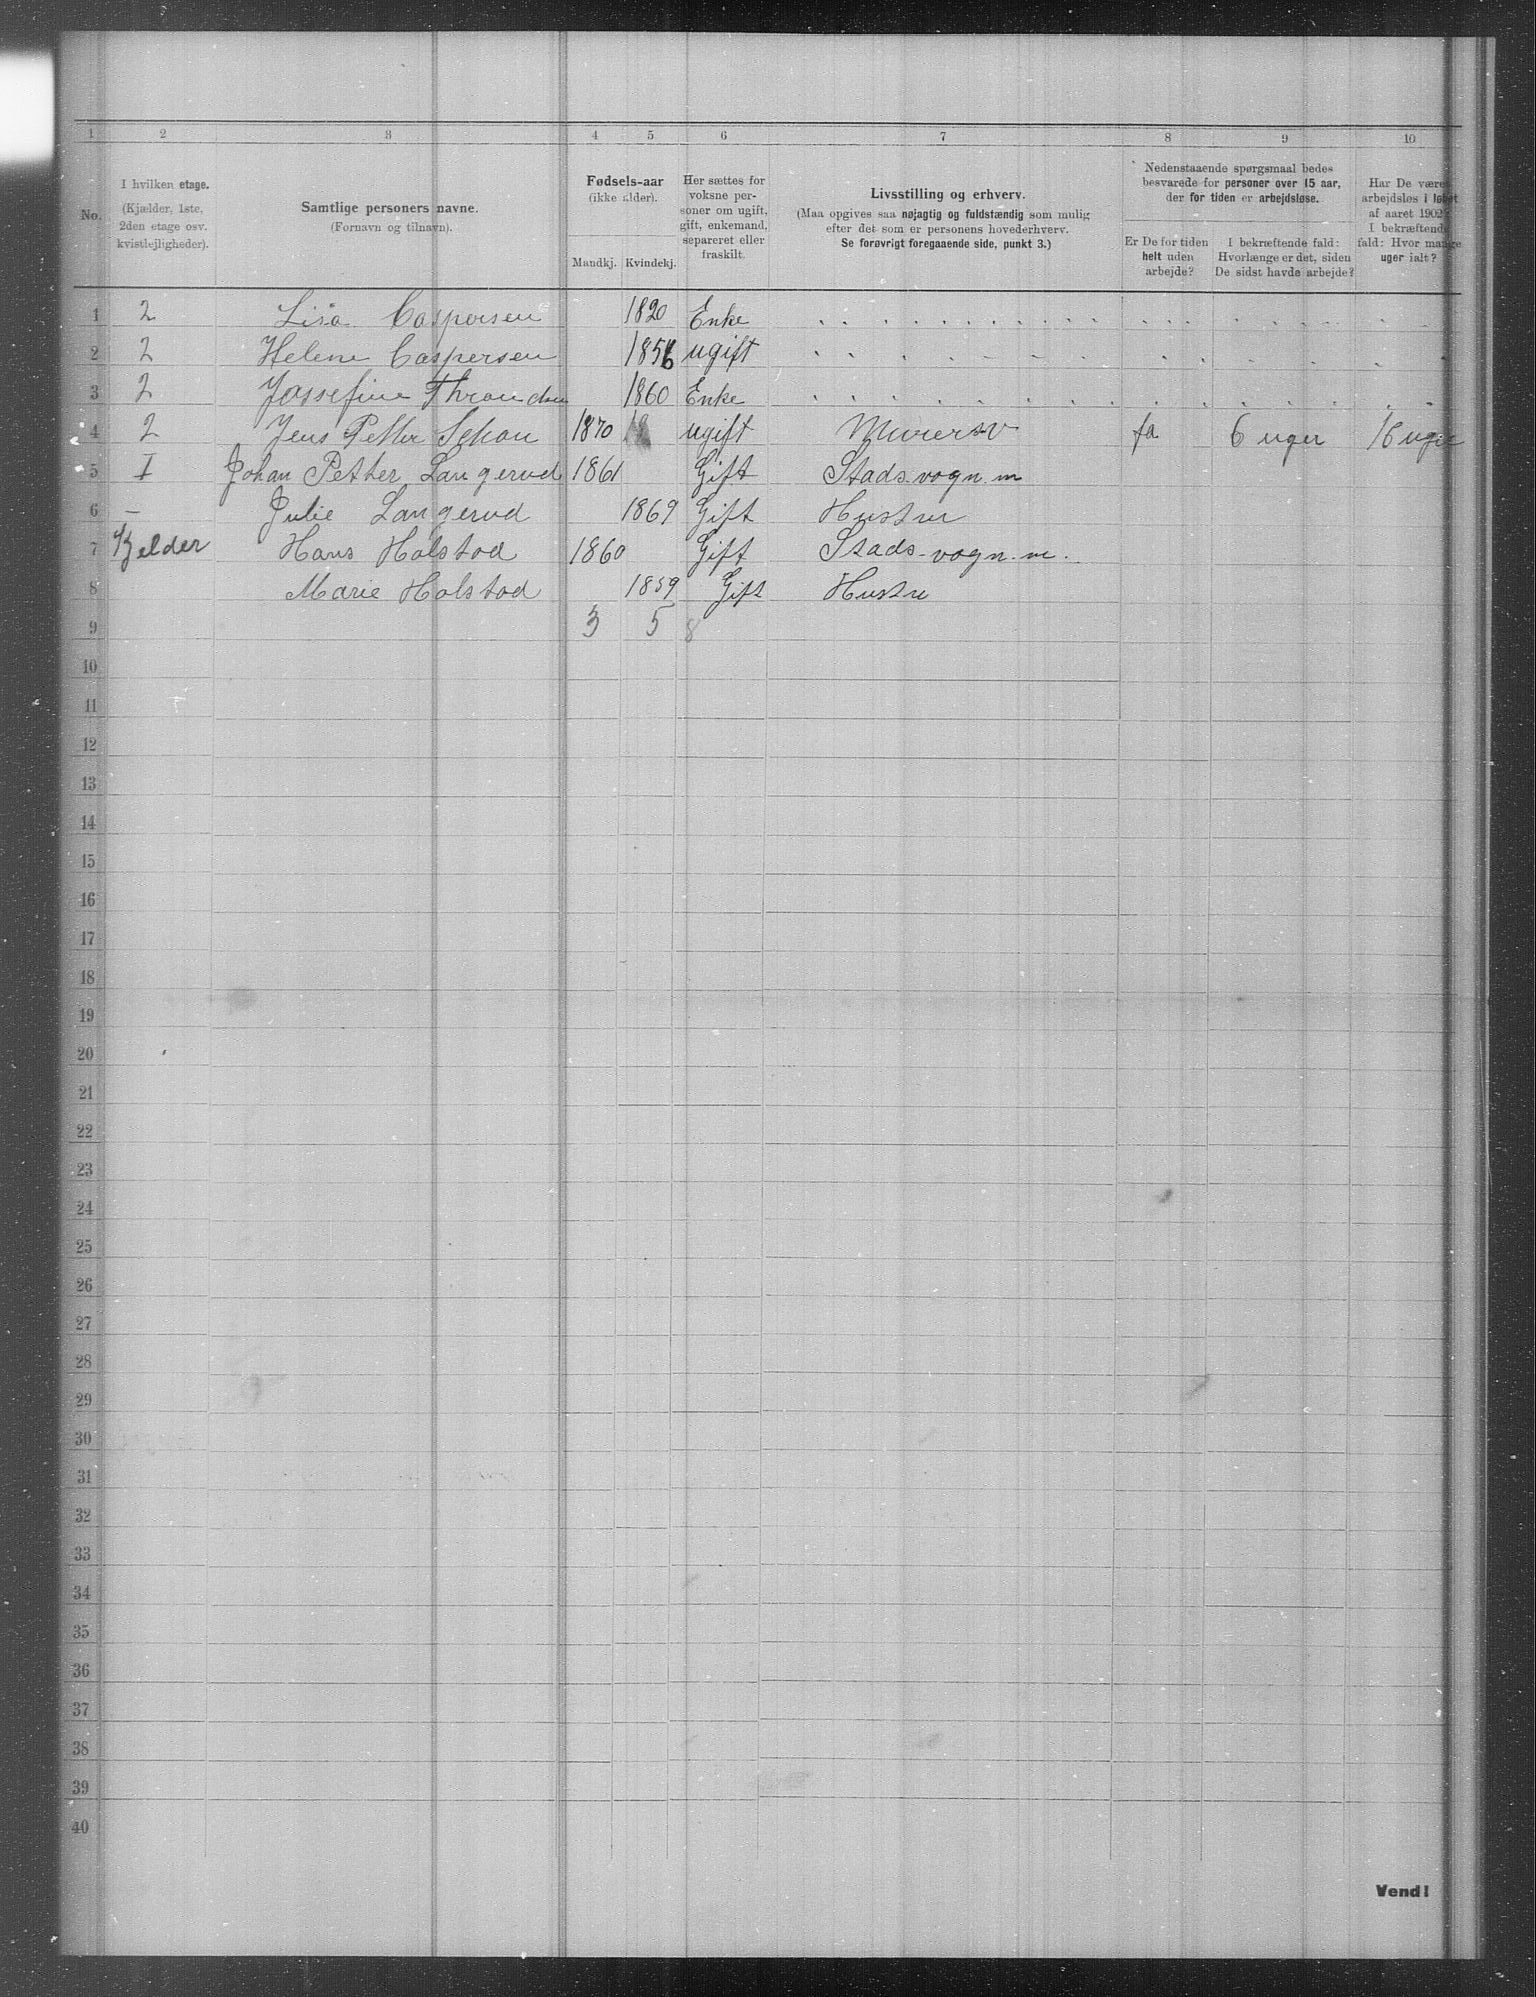 1 2 3 4 5 6 7 8 9 10
No.
I hvilken etage.
(Kjælder, 1ste,
2den etage osv.
kvistlejligheder).
Samtlige personers navne.
(Fornavn og tilnavn).
Fødsels-aar
(ikke alder).
Mandkj. Kvindekj.
Her sættes for
voksne per-
soner om ugift,
gift, enkemand,
separeret eller
fraskilt.
Livsstilling og erhverv.
(Maa opgives saa nøjagtig og fuldstændig som mulig
efter det som er personens hovederhverv.
Se forøvrigt foregaaende side, punkt 3.)
Nedenstaaende spørgsmaal bedes
besvarede for personer over 15 aar,
der for tiden er arbejdsløse.
Er De for tiden
helt uden
arbejde?
I bekræftende fald:
Hvorlænge er det, siden
De sidst havde arbejde?
Har De været
arbejdsløs i løbet
af aaret 1902?
I bekræftende
fald: Hvor mange
uger ialt?
1 2 Lisa Caspersen 1820 Enke
2 2 Helene Caspersen 1856 ugift
3 2 Jossefine Throndsen 1860 Enke
4 2 Jens Petter Schou 1870 18 ugift Murersv ja 6 uger 16 uger
5 I Johan Petter Langerud 1861 Gift Stads. vogn. m
6 — Julie Langerud 1869 Gift Hustru
7 Kjelder Hans Holstad 1860 Gift Stads-vogn. m.
8 Marie Holstad 1859 Gift Hustru
9 3 5 8
10
11
12
13
14
15
16
17
18
19
20
21
22
23
24
25
26
27
28
29
30
31
32
33
34
35
36
37
38
39
40
Vend!